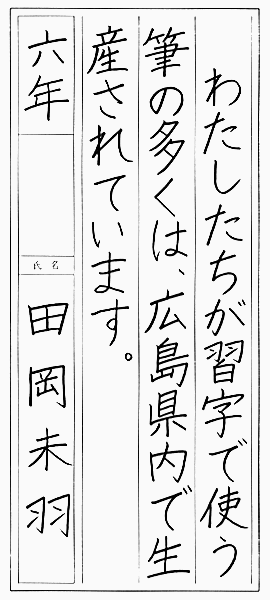 わたしたちが習字で使う
筆の多くは、広島県内で生
産されています。
六年
氏名
田岡未羽